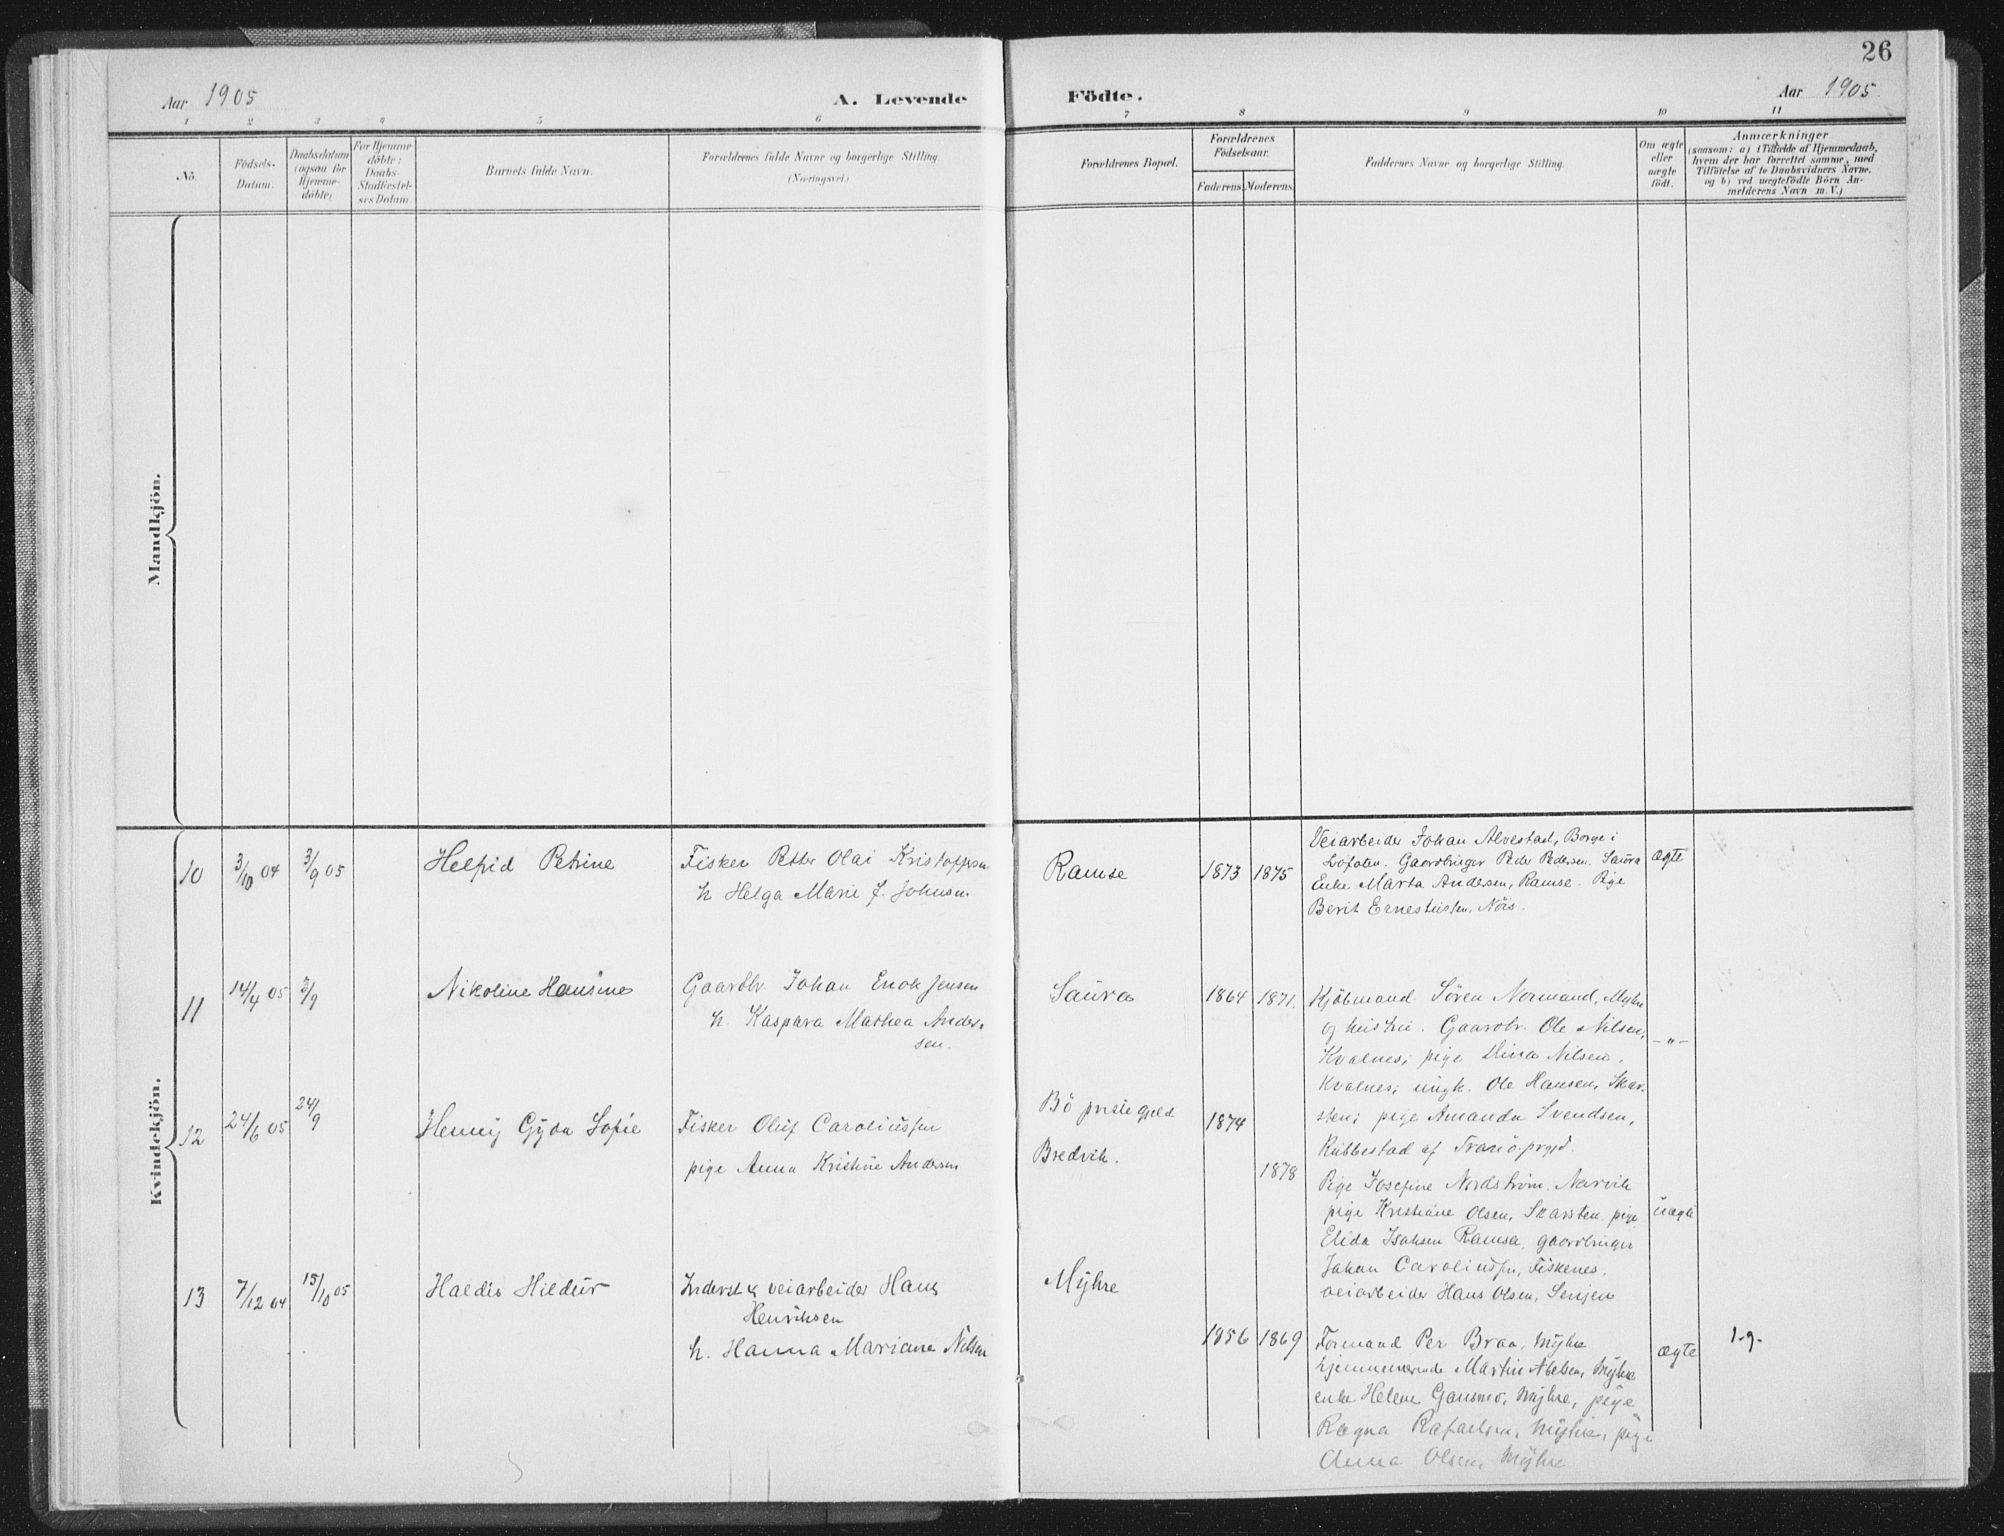 26
Aar 1905
A. Levende
Födte.
Aar 1905
1 2 3 4 5 6 7 8 9 10 11
No.
Födsels-
Datum.
Daabsdatum
(ogsaa for
Hjemme-
döbte)
For Hjemme
döbte:
Daabs-
Stadfæstel-
ses Datum.
Barnets fulde Navn.
Forældrenes fulde Navne og borgerlige Stilling
(Næringsvei.)
Forældrenes Bopæl.
Forældrenes
Födselsaar.
Faderens. Moderens.
Faddernes Navne og borgerlige Stilling.
Om ægte
eller
uægte
födt.
Anmærkninger
(saasom: a) i Tilfælde af Hjemmedaab,
hvem der har forrettet samme, med
Tilföielse af to Daabsvidners Navne.
og b) ved uægtefödte Börn An-
melderens Navn m. V.)
Mandkjön.
Kvindekjön.
10
3/10 04
3/9 05
Helfrid Petrine
Fisker Petter Olai Kristoffersen
h Helga Marie J. Johnsen
Ramse
1873 1875
Veiarbeider Johan Alvestad, Borge i
Lofoten. Gaardbruger Peder Pedersen. Saura
Enke Marta Andersen, Ramse. Pige
Berit Ernestussen, Nöis.
ægte
11
14/4 05
3/9
Nikoline Hansine
Gaardbr. Johan Enok Jensen
h. Kaspara Mathea Ander-
sen.
Saura
1864 1871.
Kjöbmand Sören Normand, Myhre
og hustru. Gaardbr. Ole Nilsen,
Kvalnes; pige Stina Nilsen,
Kvalnes; ungk. Ole Hansen, Skar-
sten; pige Amanda Svendsen,
Rubbestad af Tranö prgjd.
-"-
12
24/6 05
24/9
Henny Gyda Sofie
Fisker Oluf Caroliussen
pige Anna Kristine Andersen
Bö prestegjeld
Bredvik.
1874
1878
Pige Josefine Nordström. Narvik
pige Kristiane Olsen, Skarsten. pige
Elida Isaksen Ramsa, gaardbruger
Johan Caroliussen, Fiskenes,
veiarbeider Hans Olsen, Senjen
uægte
13
7/12 04
15/10 05
Haldis Hildur
Inderst & veiarbeider Hans
Henriksen
h. Hanna Mariane Nilsen
Myhre
1856 1869
Formand Per Braa, Myhre
hjemmeværende Martin Abelsen, Myhre
enke Helene Gausmo, Myhre, pige
Ragna Rafaelsen, Myhre, pige
Anna Olsen, Myhre
ægte
1-9-